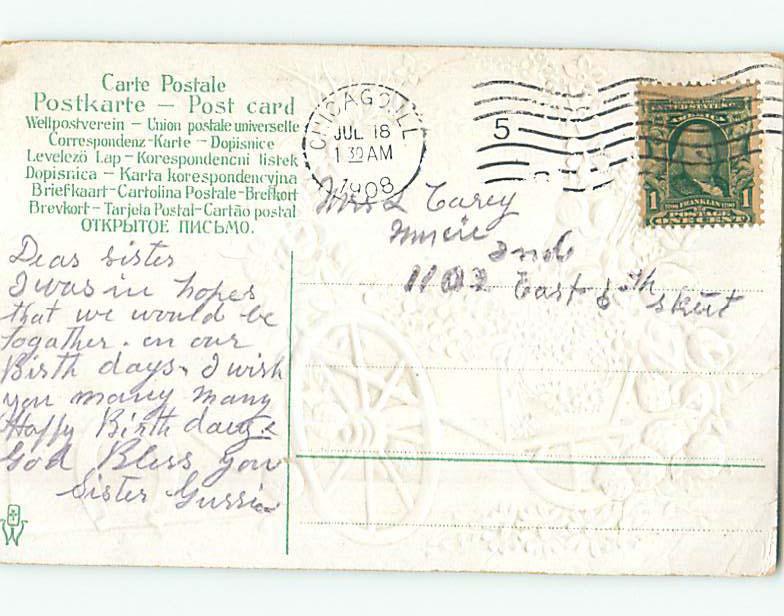 Carte Postale
Postkarte – Post card
Weltpostverein – Union postale universelle
Correspondenz-Karte – Dopisnice
Levelező Lap – Korespondencni listek
Dopisnica – Karta korespondencyjna
Briefkaart – Cartolina Postale – Brefkort
Brevkort – Tarjeta Postal – Cartão postal
ОТКРЫТОЕ ПИСЬМО.
CHICAGO, ILL.
JUL 18
1 30 AM
1908
5
UNITED STATES
1 FRANKLIN 1
ONE CENT
Mrs L Carey
Muncie
Ind
1102 East 6th street
Dear sister
I was in hopes
that we would be
togather. on our
Birth days. I wish
you many many
Happy Birth days &
God Bless you
Sister Gussie